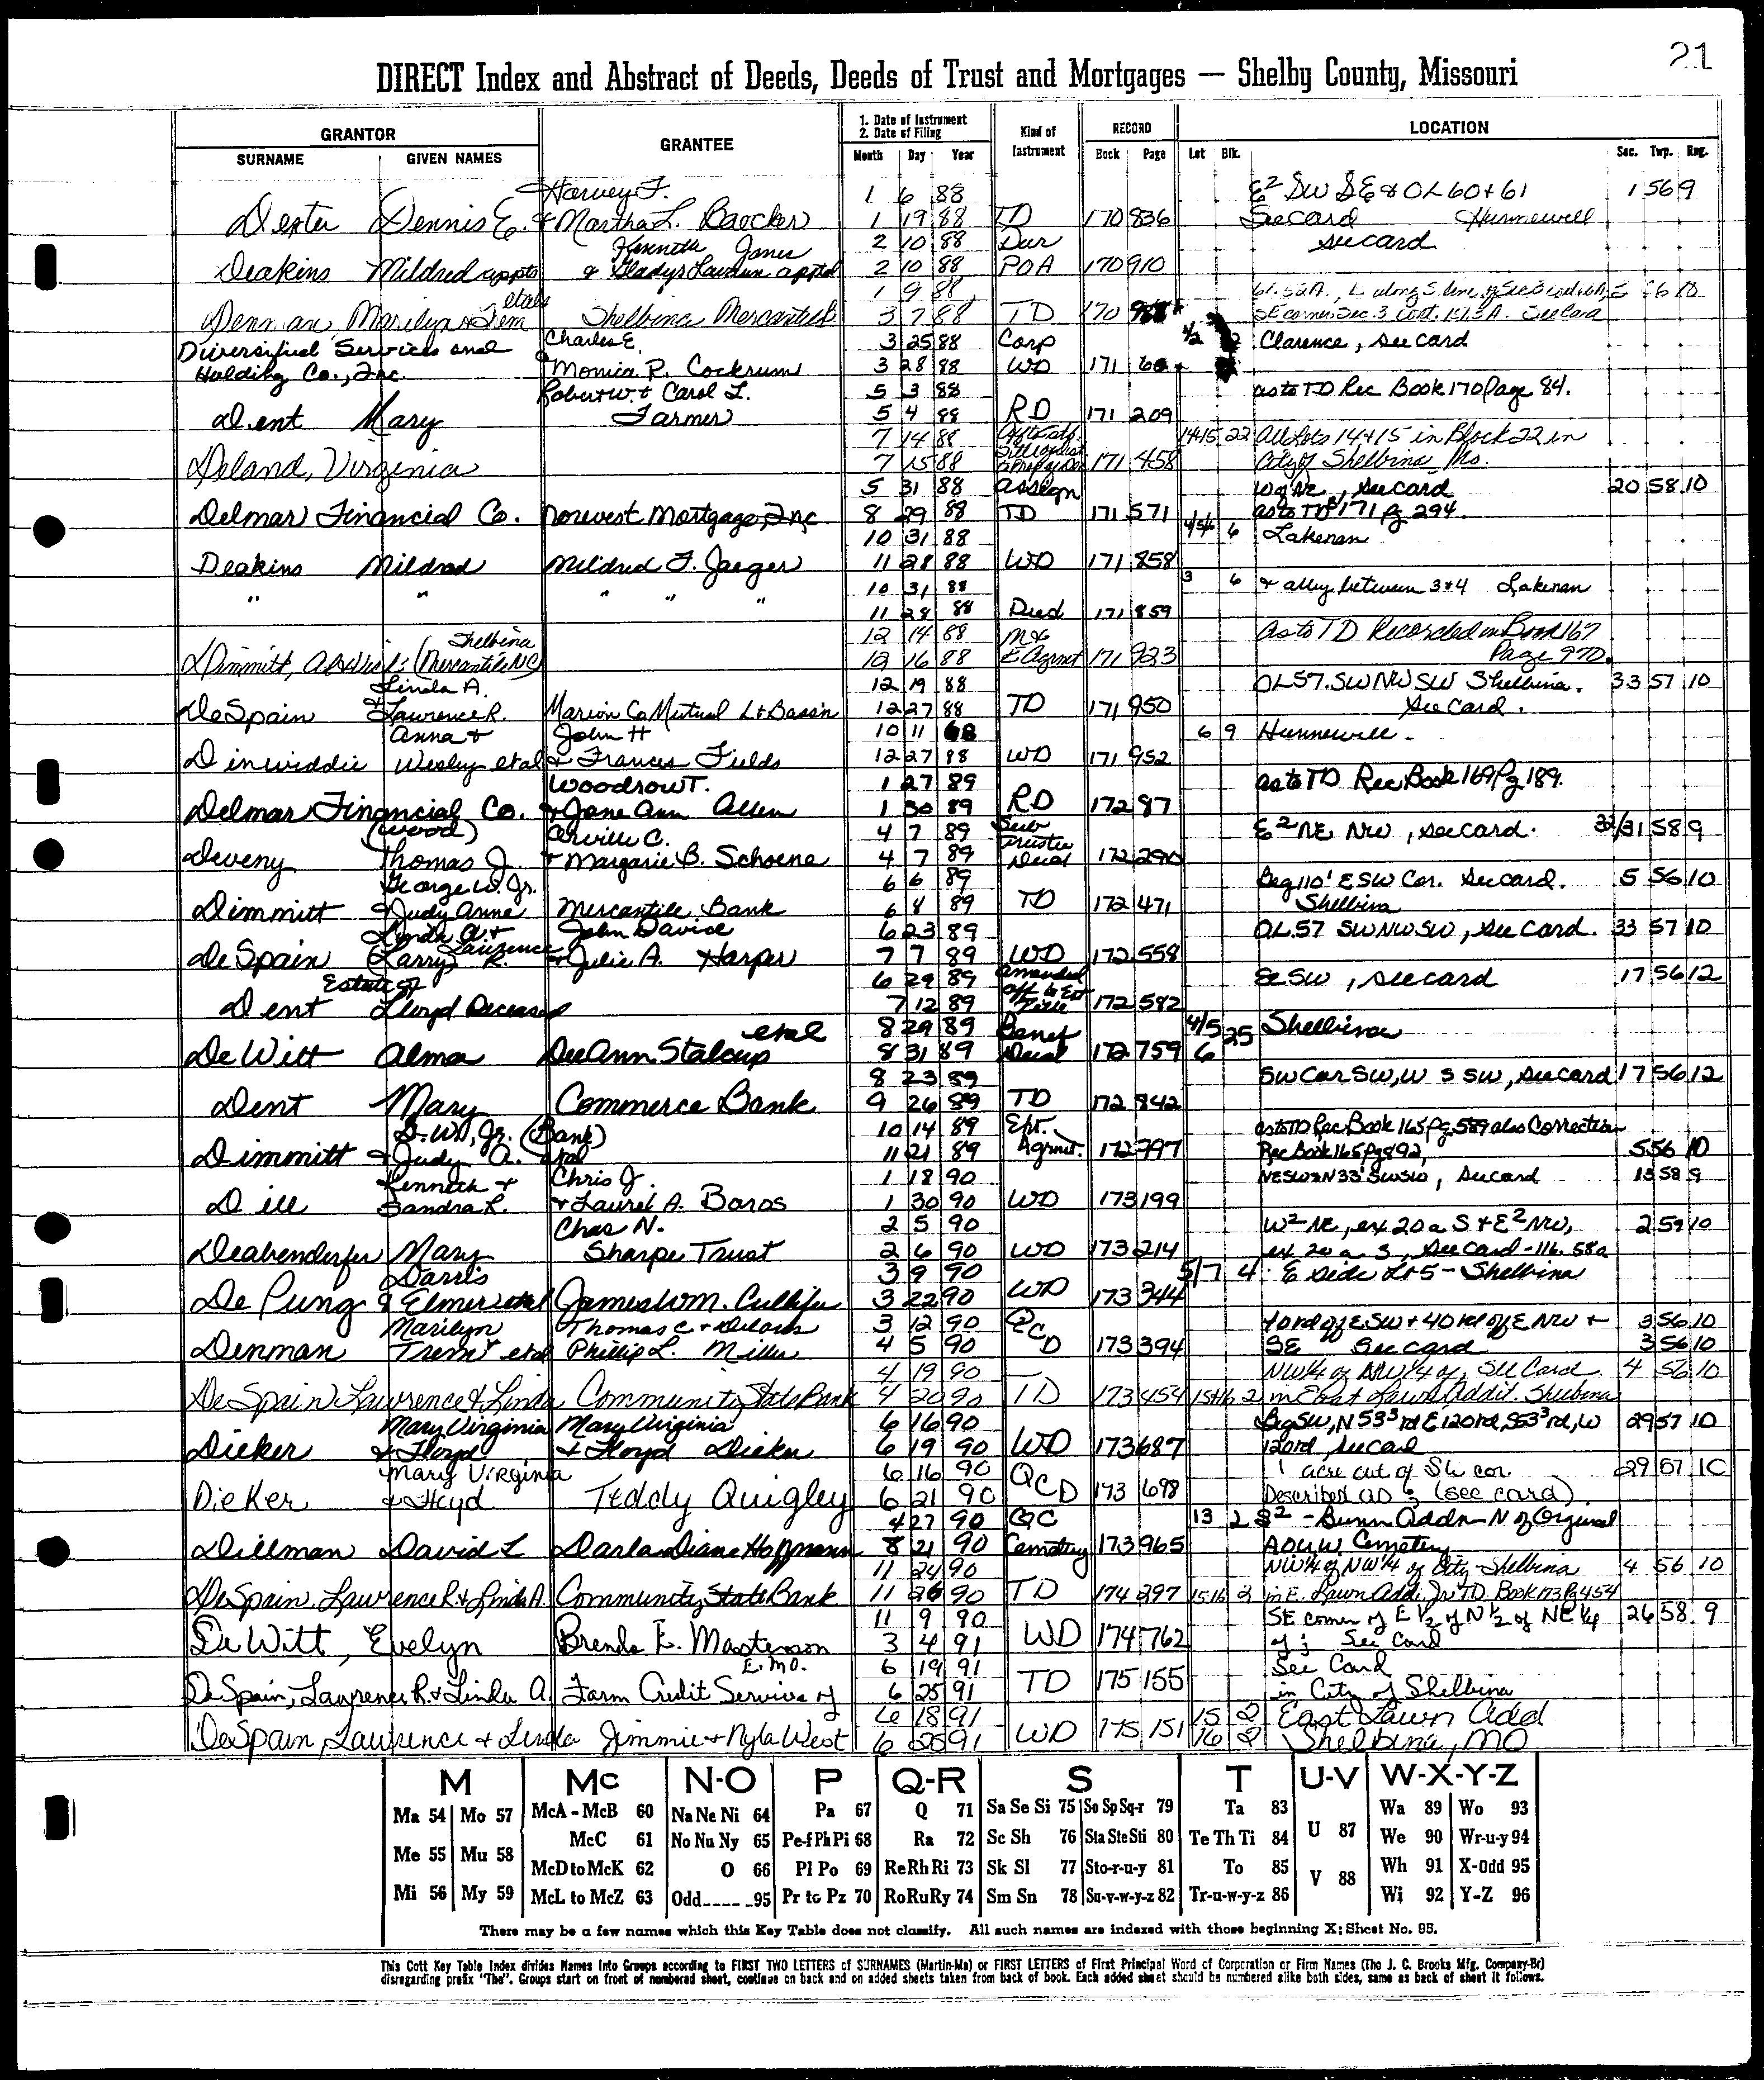 21
DIRECT Index and Abstract of Deeds, Deeds of Trust and Mortgages — Shelby County, Missouri
GRANTOR GRANTEE 1. Date of Instrument 2. Date of Filing Kind of Instrument RECORD LOCATION
SURNAME GIVEN NAMES Month Day Year Book Page Lot Blk. Sec. Twp. Rng.
Harvey F. 1 6 88 E² SW SE & OL 60+61 1 56 9
Dexter Dennis E. & Martha L. Baocker 1 19 88 TD 170 836 See card Hunnewell
Kenneth Jones 2 10 88 Dur see card
Deakins Mildred appts & Gladys appted 2 10 88 POA 170 910
etals 1 9 88
Denman, Marilyn & Trem Shelbina Mercantile 3 7 88 TD 170 SE corner Sec. 3 cont. 151.3 A. See Card
Diversified Services and Charles E. 3 25 88 Corp 1/2 Clarence, see card
Holding Co., Inc. & Monica R. Cockrum 3 28 88 WD 171 60
Robert W. & Carol L. 5 3 88 as to TD Rec Book 170 Page 84.
Dent Mary Farmer 5 4 88 RD 171 209
7 14 88 14+15 22 All Lots 14+15 in Block 22 in
Deland, Virginia 7 15 88 171 458 City of Shelbina Mo.
5 31 88 Assign W of NE, see card 20 58 10
Delmar Financial Co. Norwest Mortgage, Inc 8 29 88 TD 171 571 as to TD 171 pg 294.
10 31 88 4/5/6 6 Lakenan
Deakins Mildred Mildred F. Jaeger 11 28 88 WD 171 858
" " " " " 10 31 88 3 6 & alley between 3+4 Lakenan
11 28 88 Deed 171 859
Shelbina 12 14 88 M& As to TD Recorded in Book 167
Dimmitt, (Mercantile NC) 12 16 88 E Agrmt 171 923 Page 970.
Linda A. 12 19 88 OL 57. SW NW SW Shelbina. 33 57 10
DeSpain & Lawrence R. Marion Co Mutual Lt Bassn 12 27 88 TD 171 950 See Card.
Anna & John H 10 11 68 6 9 Hunnewell.
Dinwiddie Wesley etal & Frances Fields 12 27 88 WD 171 952
Woodrow T. 1 27 89 as to TD Rec Book 169 Pg 189.
Delmar Financial Co. & Jane Ann Allen 1 30 89 RD 172 87
(Wood) Orville C. 4 7 89 Sub Trustee E² NE NW, see card. 32/31 58 9
Deveny Thomas J. & Margarie B. Schoene 4 7 89 Deed 172 290
George W. Jr. 6 6 89 Beg 110' E SW Cor. See card. 5 56 10
Dimmitt & Judy Anne Mercantile Bank 6 8 89 TD 172 471 Shelbina
Linda A + John David 6 23 89 OL 57 SW NW SW, see Card. 33 57 10
DeSpain (Larry) Lawrence R. & Julie A. Harper 7 7 89 WD 172 558
Estate of 6 29 89 Amended E SW, see card 17 56 12
Dent Lloyd Deceased 7 12 89 Aff to Est Title 172 582
etal 8 29 89 Benef 4/5 25 Shelbina
DeWitt Alma DeeAnn Stalcup 8 31 89 Deed 172 759 6
8 23 89 SW Cor SW, W S SW, see card 17 56 12
Dent Mary Commerce Bank 9 26 89 TD 172 842
G. W., Jr. (Bank) 10 14 89 Ext. as to TD Rec Book 165 Pg 589 also Correction
Dimmitt & Judy A. etal 11 21 89 Agrmt. 172 997 Rec Book 165 Pg 892, 5 56 10
Kenneth + Chris J. 1 18 90 NE SW & N 33' SW SW, see card 15 58 9
Dill Sandra L. & Laurel A. Baros 1 30 90 WD 173 199
Chas N. 2 5 90 W² NE, ex 20 a S + E² NW, 2 59 10
Deabenderfer Mary Sharpe Trust 2 6 90 WD 173 214 ex 20 a S, see card - 116.58 a
Darris 3 9 90 5/7 4 E side Lt 5 - Shelbina
DePung & Elmer etal James Wm. Cullifer 3 22 90 WD 173 344
Marilyn Thomas C + Delores 3 12 90 QC 40 rd off E SW + 40 rd off E NW + 3 56 10
Denman Trem + etal Phillip L. Miller 4 5 90 D 173 394 SE See card 3 56 10
4 19 90 NW¼ of NW¼ of, See Card 4 56 10
DeSpain Lawrence & Linda Community State Bank 4 20 90 TD 173 454 15+16 2 in East Lawn Addit. Shelbina
Mary Virginia Mary Virginia 6 16 90 Beg SW, N 53³ rd E 120 rd, S 53³ rd, W 29 57 10
Dieker & Floyd & Floyd Dieker 6 19 90 WD 173 687 120 rd, see card
Mary Virginia 6 16 90 1 acre out of SW cor 29 57 10
Dieker & Floyd Teddy Quigley 6 21 90 QCD 173 698 Described as ; (see card).
4 27 90 QC 13 2 S² - Bunn Addn N of Orginal
Dillman David L Darla Diane Hoffmann 8 21 90 Cemetery 173 965 AOUW Cemetery
11 24 90 NW¼ of NW¼ of City Shelbina 4 56 10
DeSpain Lawrence R. & Linda A. Community State Bank 11 26 90 TD 174 297 15 16 2 in E. Lawn Addi. In TD Book 173 Pg 454
11 9 90 SE corner of E ½ of N ½ of NE ¼ 26 58 9
DeWitt, Evelyn Brenda K. Masterson 3 4 91 WD 174 762 of ; See Card
E. MO. 6 19 91 See Card
DeSpain, Lawrence R. & Linda A. Farm Credit Service of 6 25 91 TD 175 155 in City of Shelbina
6 18 91 15 2 East Lawn Add
DeSpain, Lawrence & Linda Jimmie + Nyla West 6 25 91 WD 175 151 16 2 Shelbina, MO
M Mc N-O P Q-R S T U-V W-X-Y-Z
Ma 54 Mo 57 McA - McB 60 Na Ne Ni 64 Pa 67 Q 71 Sa Se Si 75 So Sp Sq-r 79 Ta 83 U 87 Wa 89 Wo 93
McC 61 No Nu Ny 65 Pe-f Ph Pi 68 Ra 72 Sc Sh 76 Sta Ste Sti 80 Te Th Ti 84 We 90 Wr-u-y 94
Me 55 Mu 58 McD to McK 62 O 66 Pl Po 69 Re Rh Ri 73 Sk Sl 77 Sto-r-u-y 81 To 85 V 88 Wh 91 X-Odd 95
Mi 56 My 59 McL to McZ 63 Odd_____95 Pr to Pz 70 Ro Ru Ry 74 Sm Sn 78 Su-v-w-y-z 82 Tr-u-w-y-z 86 Wi 92 Y-Z 96
There may be a few names which this Key Table does not classify. All such names are indexed with those beginning X; Sheet No. 95.
This Cott Key Table Index divides Names Into Groups according to FIRST TWO LETTERS of SURNAMES (Martin-Ma) or FIRST LETTERS of First Principal Word of Corporation or Firm Names (The J. C. Brooks Mfg. Company-Br)
disregarding prefix "The". Groups start on front of numbered sheet, continue on back and on added sheets taken from back of book. Each added sheet should be numbered alike both sides, same as back of sheet it follows.